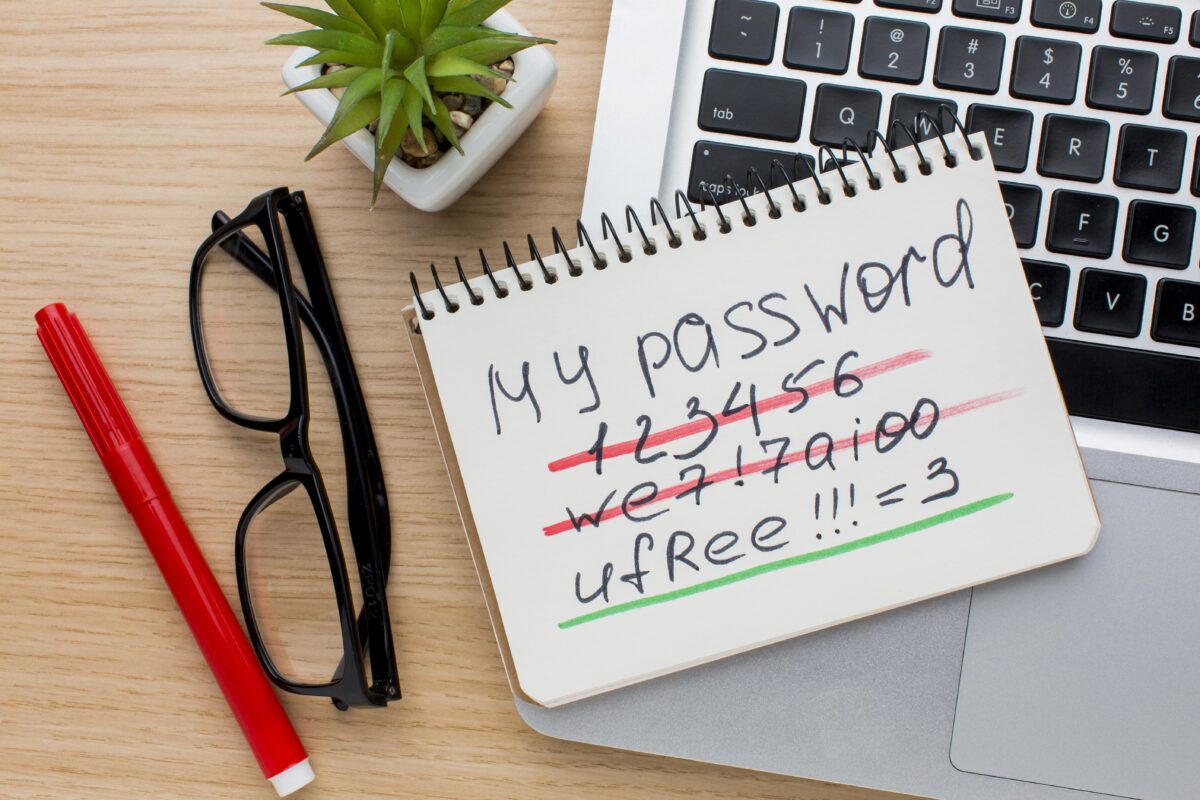 ~
!
1
@
2
#
3
$
4
%
5
F3
F4
F5
tab
Q
W
E
R
T
caps lock
F
G
C
V
B
My password
123456
we7!7aioo
ufRee!!!=3